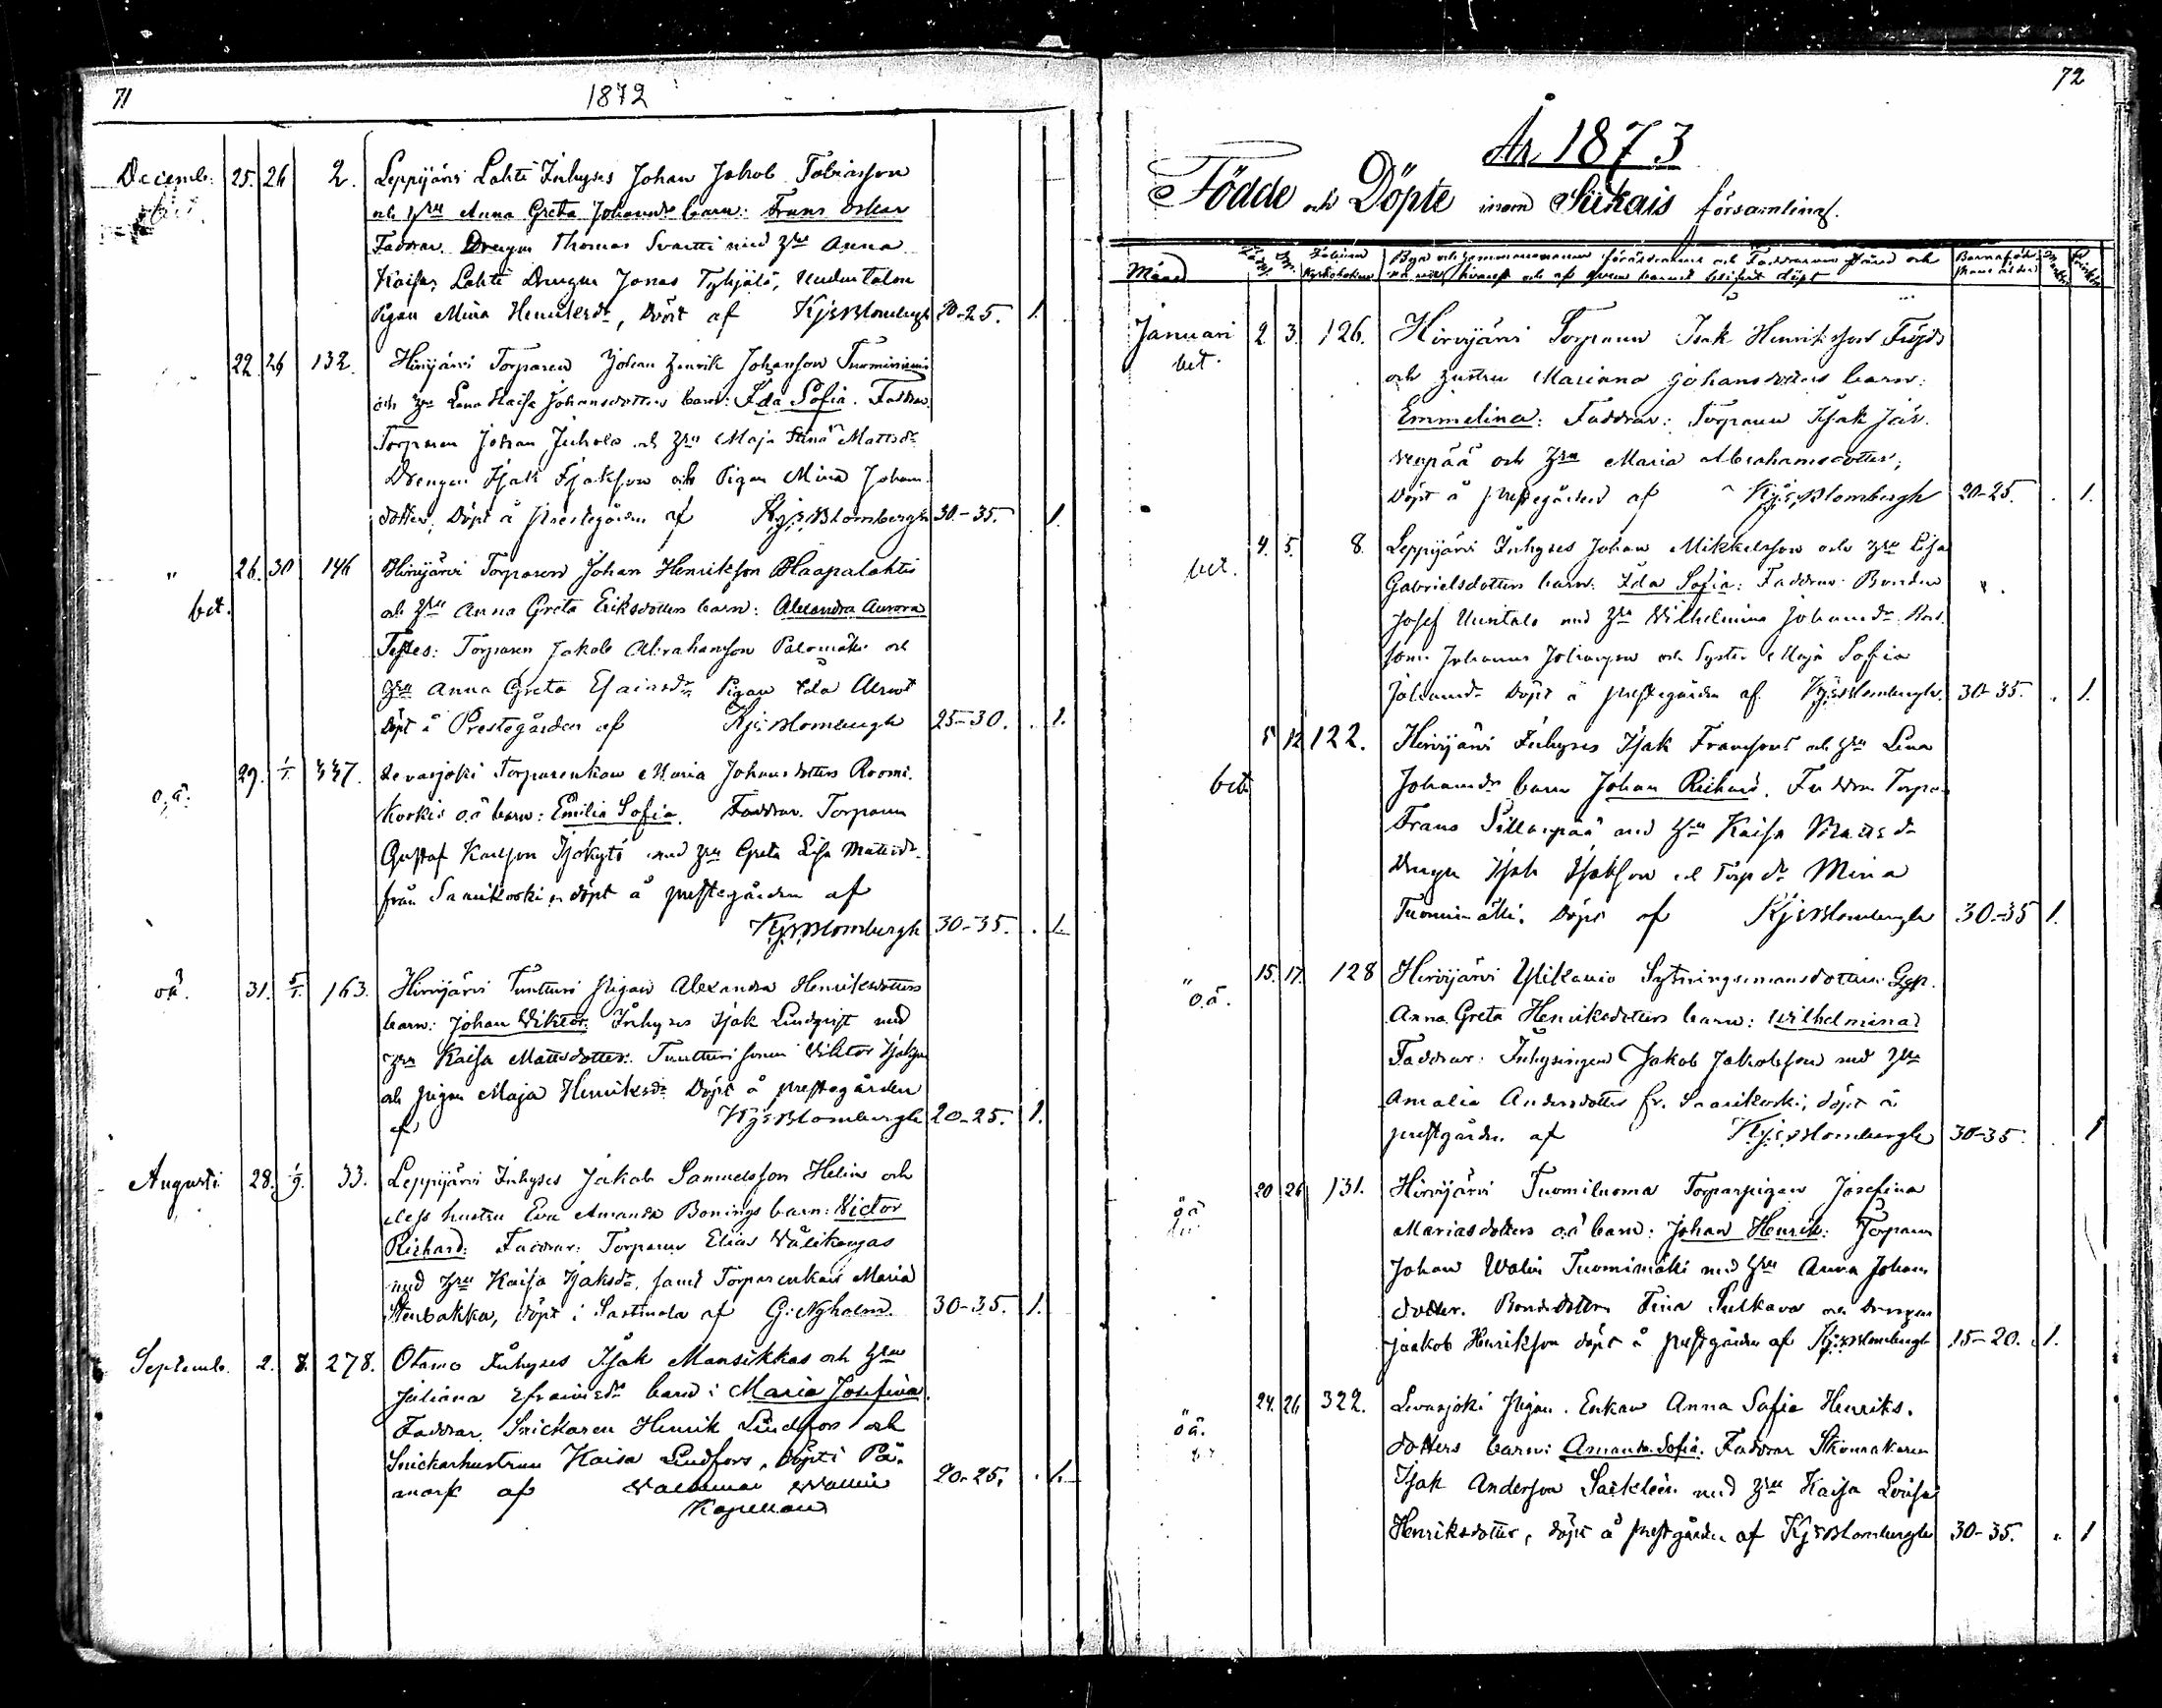 71
1872
Decemb. 25. 26 2. Leppijärvi Lahti Inhyses Johan Jakob Tobiasson
och Hru Anna Greta Johansdr barn: Frans Oskar
Faddrar. Drengen Thomas Svartti med Hru Anna
Kaisa, Lahti Drengen Jonas
Pigan Mina Henriksdr, döpt af KjsBlombergh 20-25. 1.
22 26 132. Hirvijärvi Torparen Johan Henrik Johansson Tuominiemi
och Hru Lena Kaisa Johansdotters barn: Ida Sofia. Faddrar
Torparen Johan Juhola och Hru Maja Stina Mattsdr
Drengen Isak Isaksson och Pigan Mina Johans-
dotter. Döpt å Prestegården af KjsBlombergh 30-35. 1.
" 26. 30 146 Hirvijärvi Torparen Johan Henriksson Haapalahti
bet. och Hru Anna Greta Eriksdotters barn: Alexandra Aurora
Testes: Torparen Jakob Abrahamsson Palomäki och
Hru Anna Greta Esaiasdr Pigan Ida
döpt å Prestegården af KjsBlombergh 25-30. . 1.
o,ä. 29. 1/1. 337. Levasjoki Torparenkan Maria Johansdotters Roomi-
koskis o.ä barn: Emilia Sofia. Faddrar. Torparen
Gustaf Karlsson Isokytö med Hru Greta Lisa Mattsdr
från Saarikoski, döpt å prestegården af
KjsBlombergh 30-35. . 1.
oä. 31. 5/1. 163. Hirvijärvi Tuntturi Pigan Alexandra Henriksdotters
barn: Johan Viktor. Inhyses Isak Lindqvist med
Hru Kaisa Mattsdotter. Tuntturi sonen Viktor
och pigan Maja Henriksdr Döpt å prestegården
af KjsBlombergh 20-25. 1.
Augusti 28. 1/9. 33. Leppijärvi Inhyses Jakob Samuelsson Helin och
dess hustru Eva Amanda Bonings barn: Victor
Richard: Faddrar: Torparen Elias Välikangas
med Hru Kaisa Isaksdr, samt Torparenkan Maria
Stenbakka, döpt i Sastmola af G: Nyholm. 30-35. 1.
Septemb. 2. 8. 278. Otamo Inhyses Isak Mansikkas och Hru
Juliana Efraimsdr barn: Maria Josefina.
Faddrar. Snickaren Henrik Lindfors och
Snickarhustrun Kaisa Lindfors, döpt i På-
mark af Waldemar Wallin 20-25. . 1.
Kapellan
72
År 1873
Födde och Döpte inom Siikais församling.
Månad Född. Döpt. Barnaföderskans ålder
Januari 2. 3. 126. Hirvijärvi Torparen Isak Henriksson
bet. och hustru Marianna Johansdotters barn:
Emmelina: Faddrar: Torparen Isak Jär-
venpää och Hru Maria Abrahamsdotter,
Döpt å prestegården af KjsBlombergh 20-25. . 1.
bet. 4. 5. 8. Leppijärvi Inhyses Johan Mikkelsson och Hru Lisa
Gabrielsdotters barn: Ida Sofia: Faddrar: Bonden
Josef Uusitalo med Hru Wilhelmina Johansdr Bond-
sonen Johannes Johansson och Syster Maja Sofia
Johansdr Döpt å prestegården af KjsBlombergh. 30-35. . 1.
5 12 122. Hirvijärvi Inhyses Isak Fransson och Hru Lena
bet. Johansdr barn Johan Richard. Faddrar Torpar
Frans Sillanpää med Hru Kaisa Mattsdr
Drengen Isak Isaksson och Torp dr Mina
Tuomimäki. Döpt af KjsBlombergh 30-35 1.
" 15. 17. 128 Hirvijärvi Ylikauio Sytningsmansdottern
o.ä. Anna Greta Henriksdotters barn: Wilhelmina
Faddrar: Inhysingen Jakob Jakobsson med Hru
Amalia Andersdotter fr. Saarikoski, döpt å
prestgården af KjsBlombergh 30-35. . 1
oä 20 26 131. Hirvijärvi Tuomiluoma Torparpigan Josefina
Mariasdotters oä barn: Johan Henrik: Torparen
Johan Walin Tuomimäki med Hru Anna Johans
dotter. Bondedottern Fina Sulkava och drengen
Jaakob Henriksson döpt å prestgården af KjsBlombergh 15-20. 1.
" 24. 26 322. Levasjoki Pigan. Enkan Anna Sofia Henriks-
oä. dotters barn: Amanda Sofia. Faddrar Skomakaren
Isak Andersson med Hru Kaisa Lovisa
Henriksdotter, döpt å prestgården af KjsBlombergh 30-35. . 1